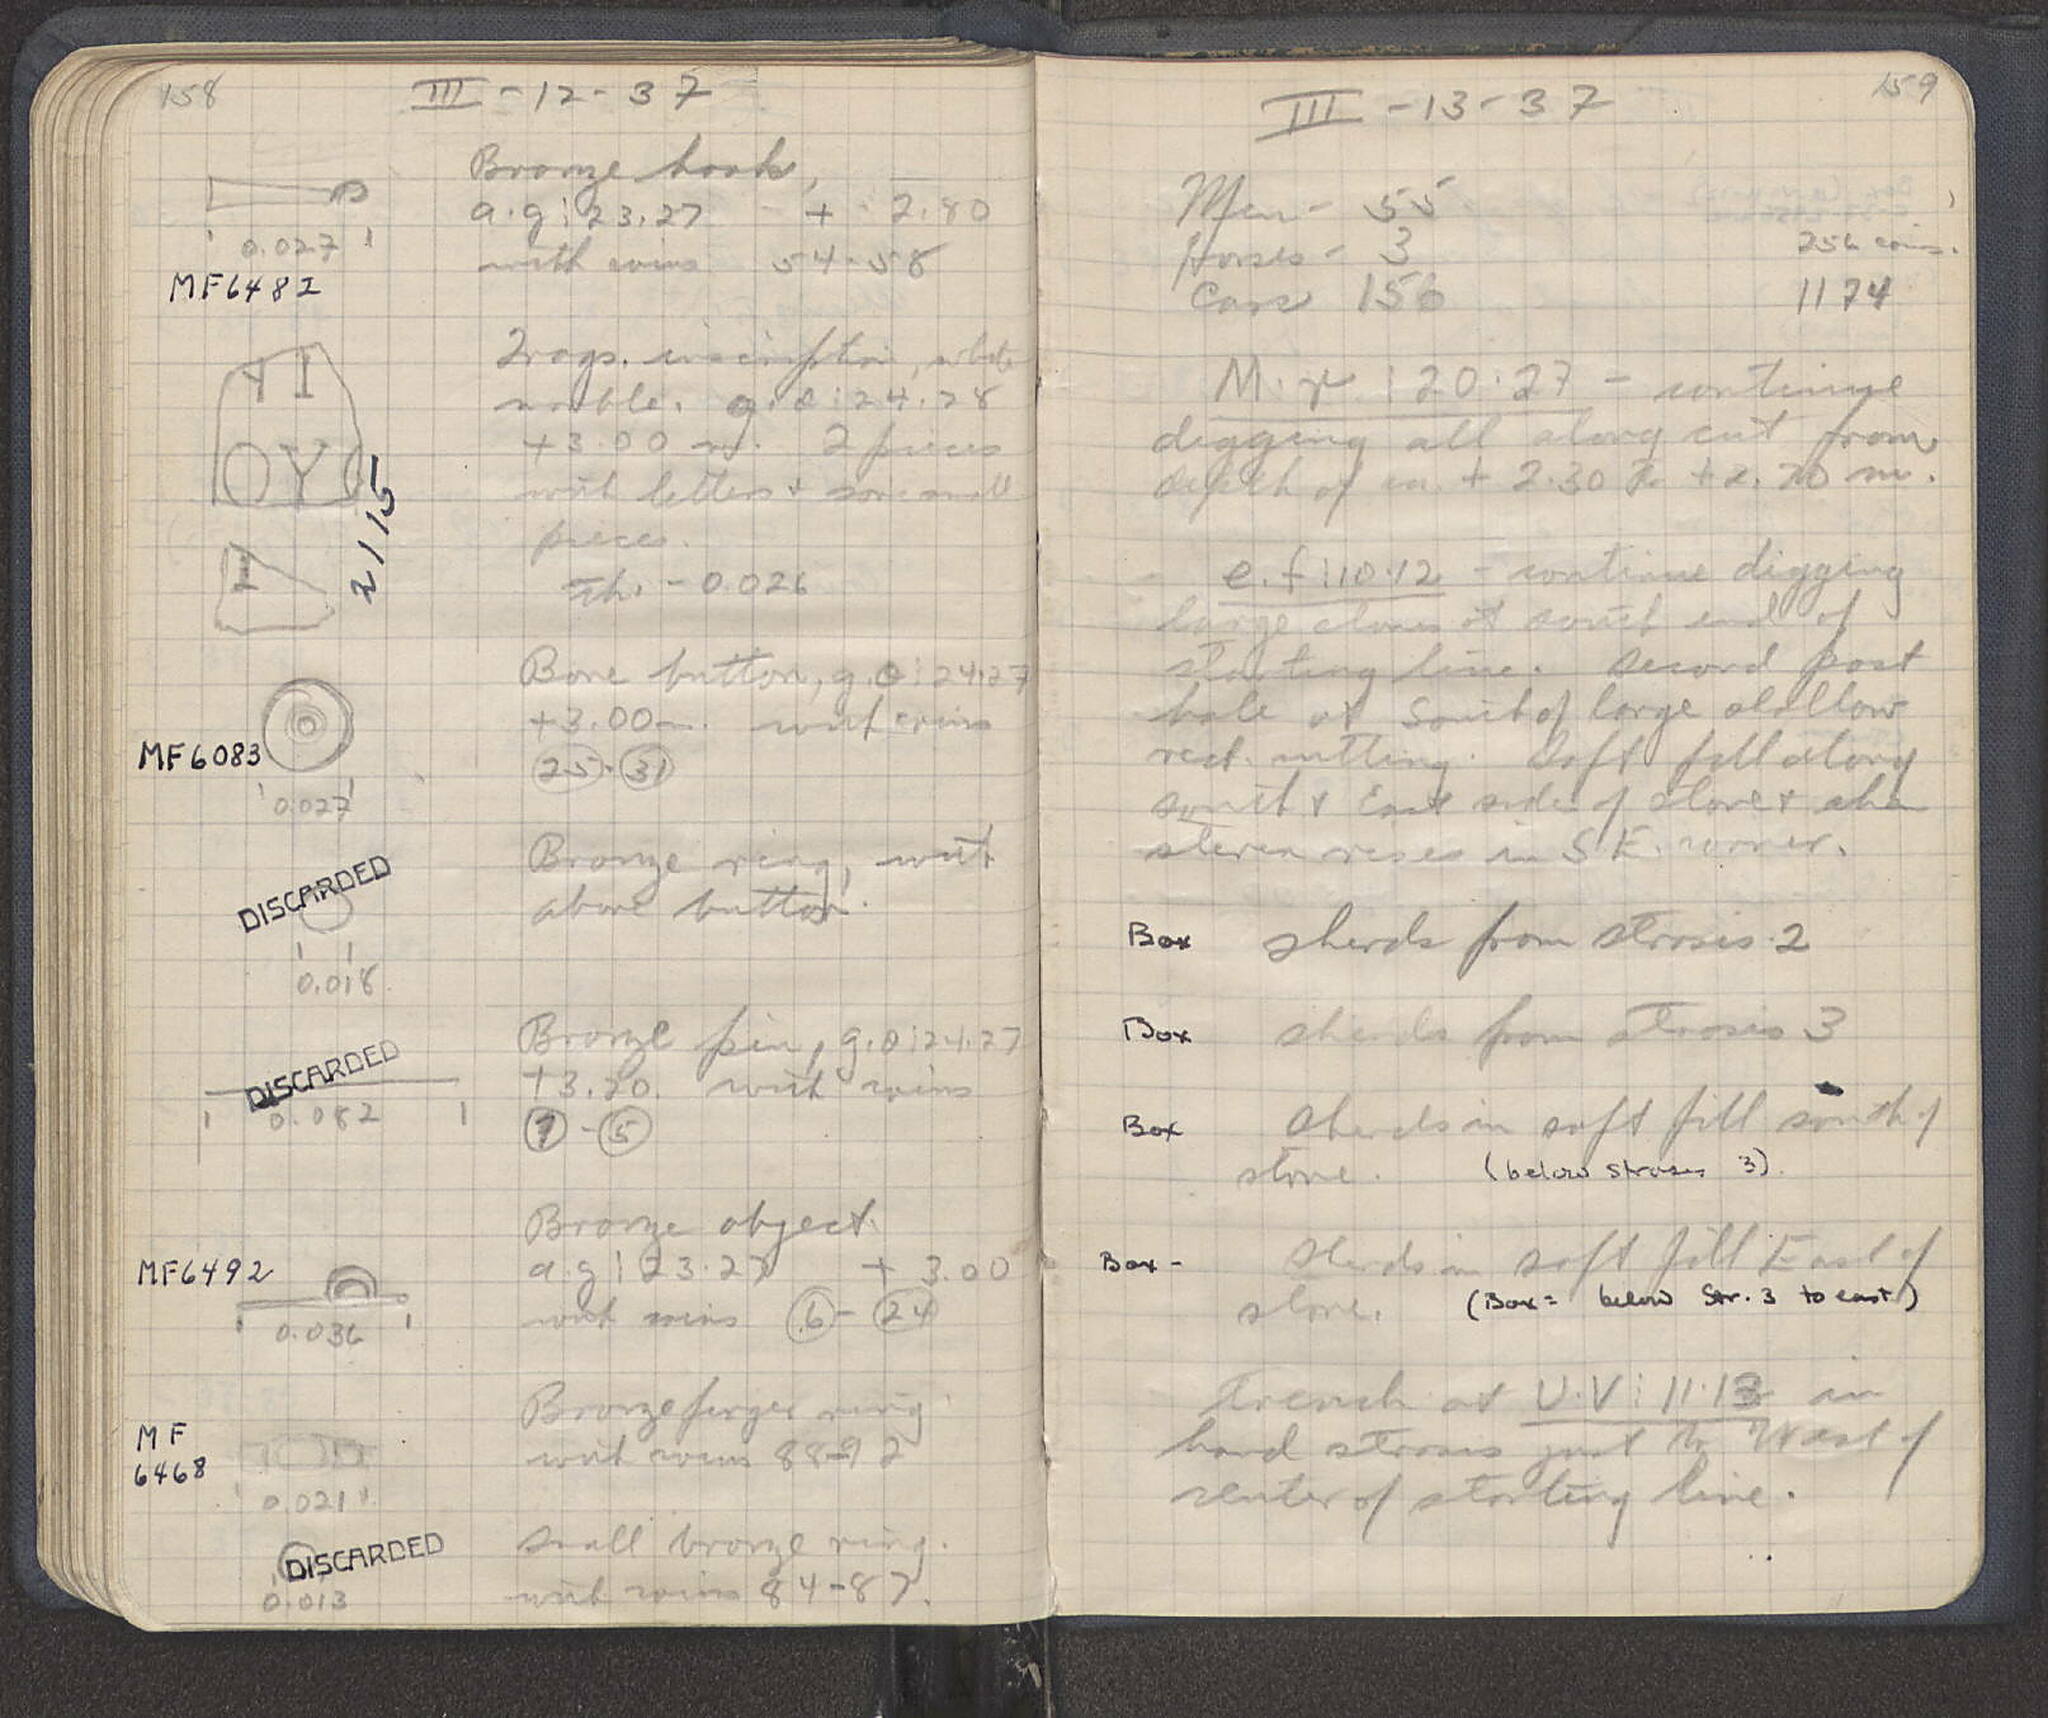 158
III - 12 - 37
Bronze hook,
a.g : 23.27 - + 2.80
with coins 54-58
0.027
MF6482
Frags. inscription, white
marble. g.θ : 24.28
+3.00 m. 2 pieces
with letters + some small
pieces.
Th. - 0.026
Υ Ι
Ο Υ Ο
Ι
2115
Bone button, g.θ : 24.27
+3.00 m. with coins
25 - 31
MF6083
0.027
Bronze ring, with
above button.
DISCARDED
0.018
Bronze pin, g.θ : 24.27
+3.20. with coins
1 - 5
DISCARDED
0.082
Bronze object
a.g : 23.27 + 3.00
with coins 6 - 24
MF6492
0.036
Bronze finger ring
with coins 88-92
MF
6468
0.021
Small bronze ring.
with coins 84-87.
DISCARDED
0.013
159
III - 13 - 37
Men - 55
Horses - 3
256 coins.
Cars 156
1174
M. : 20:27 - continue
digging all along cut from
depth of ca. + 2.30 to + 2.20 m.
e.f : 10.12 - continue digging
large stones at south end of
starting line. Second post
hole at South of large shallow
rect. cutting. Soft fill along
south + East side of stone +
stereo rises in S.E. corner.
Box sherds from strosis 2
Box sherds from strosis 3
Box Sherds in soft fill south of
stone. (below stroses 3).
Box - Sherds in soft fill East of
stone. (Box = below Str. 3 to east)
Trench at U.V : 11.13 in
hard strosis just to West of
center of starting line.